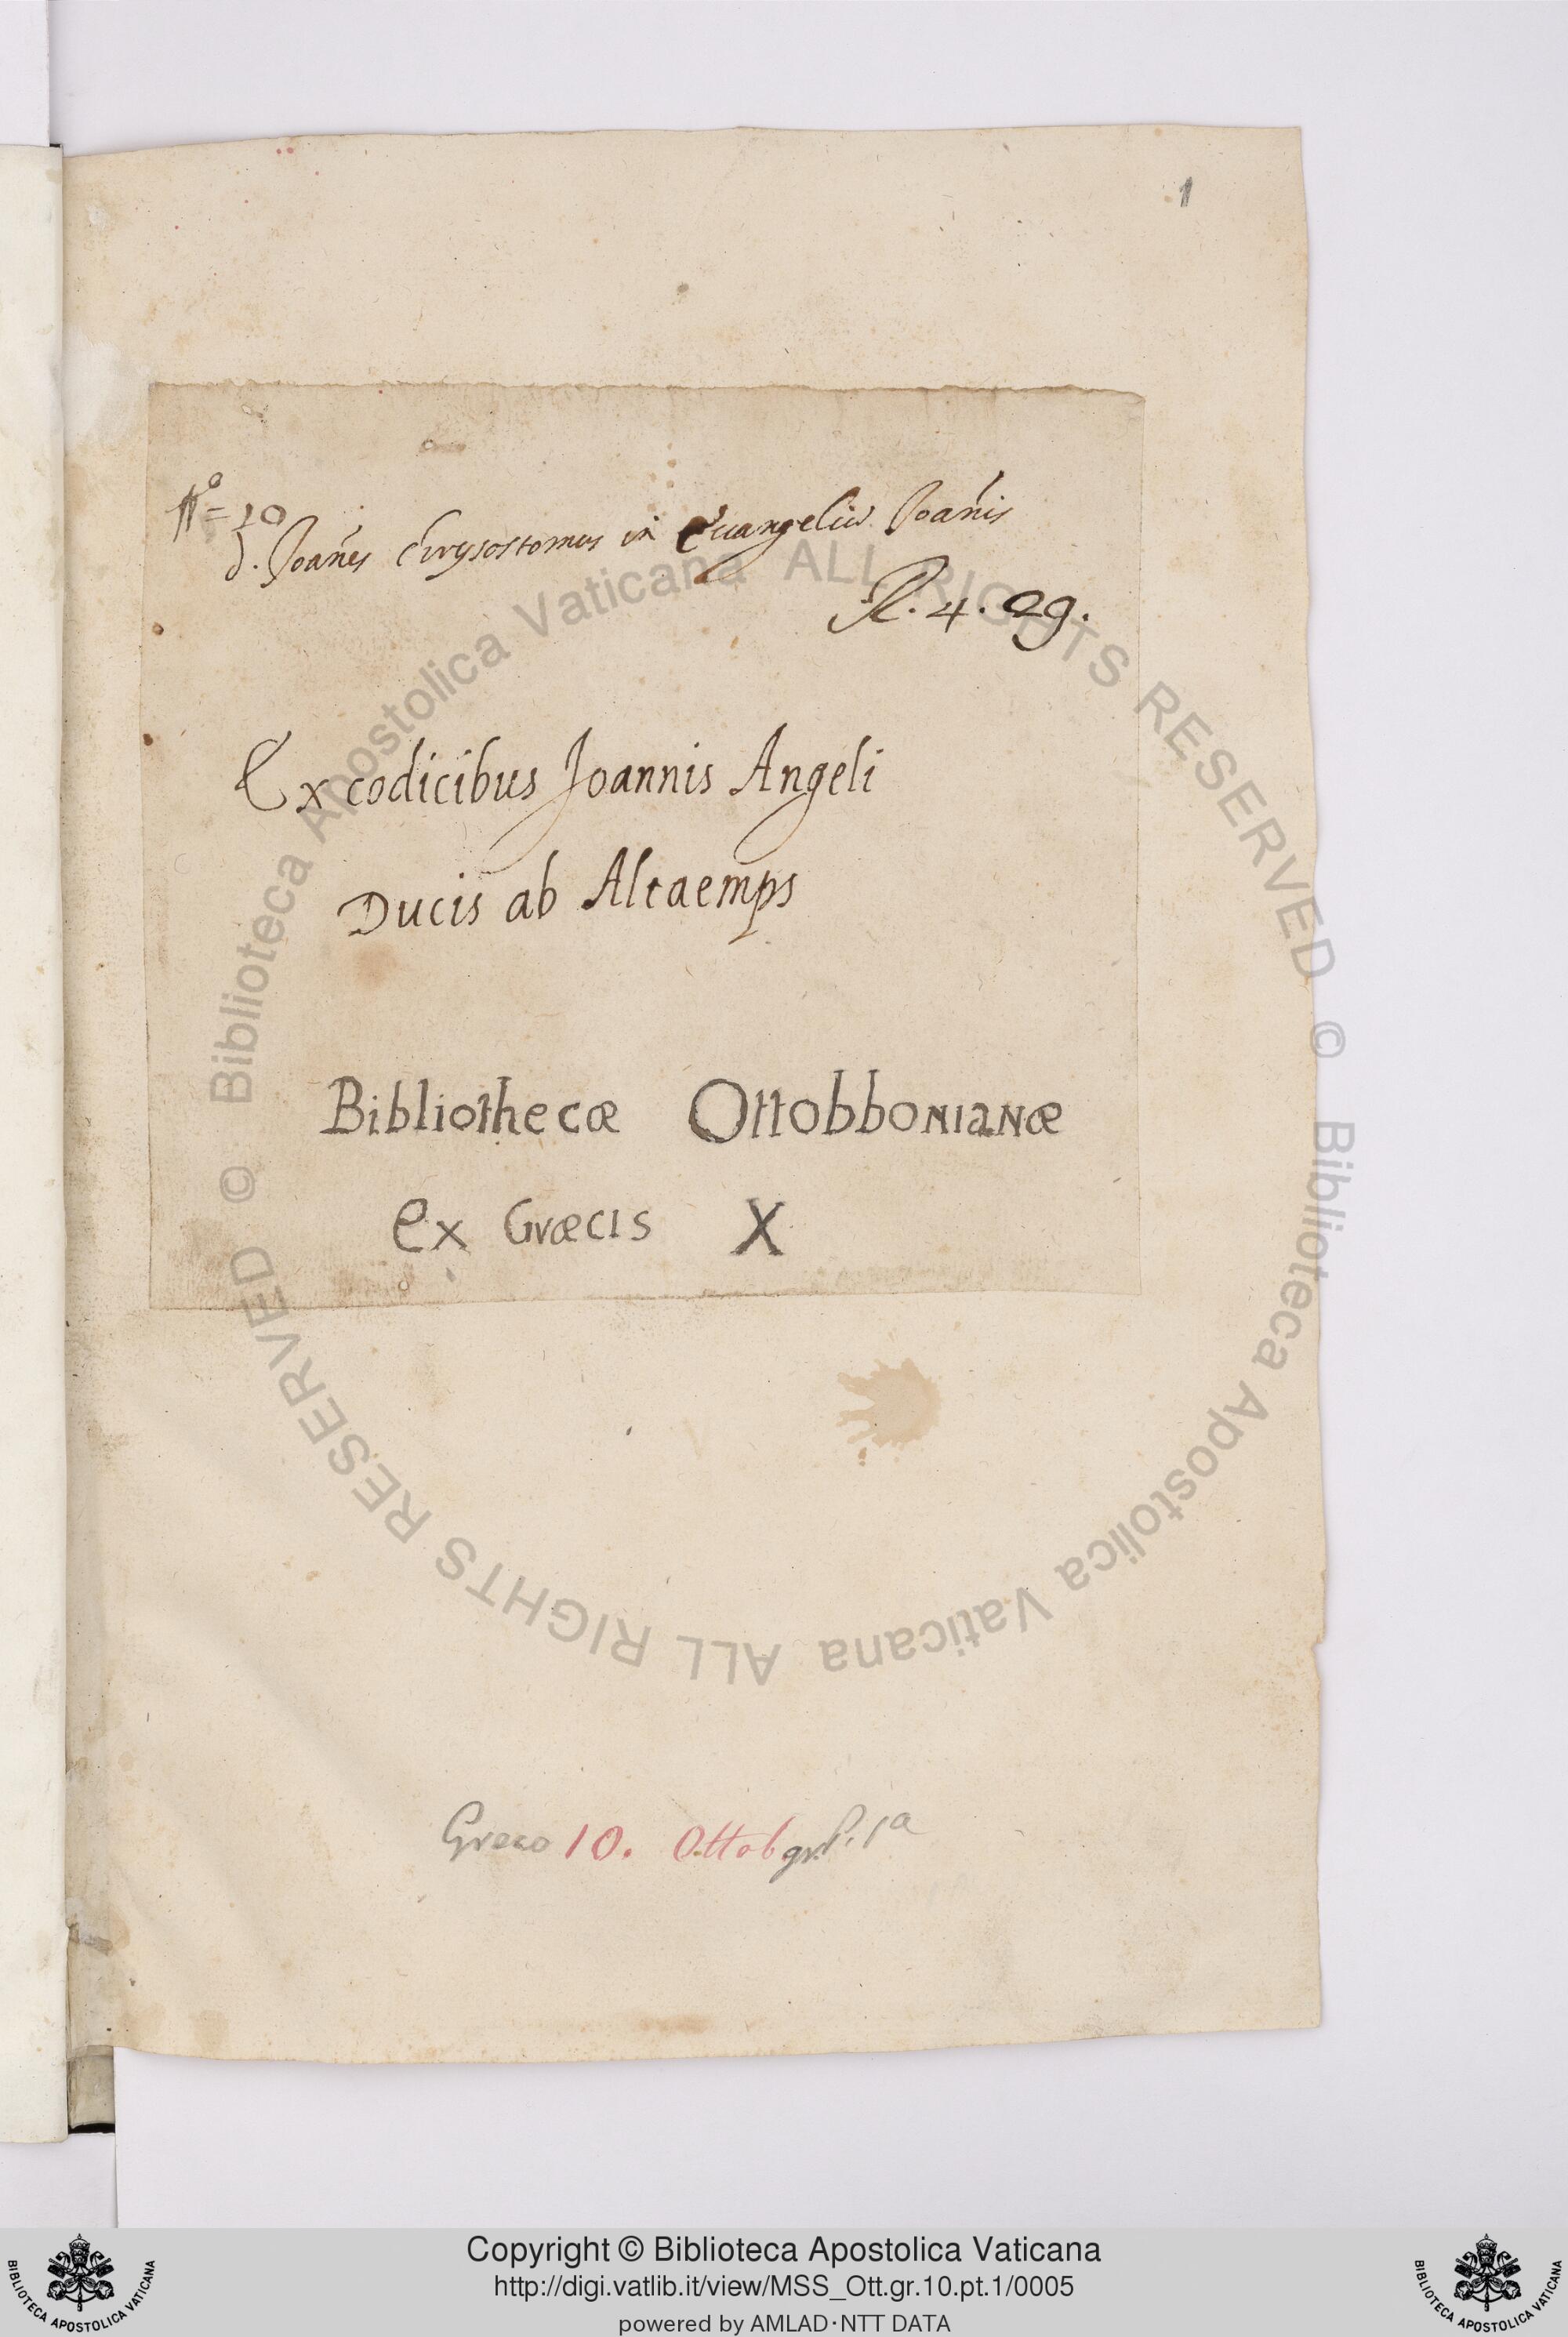 1
N° = 10
D. Joañes Chrysostomus in Euangeliũ Joañis
R. 4. 29.
Ex codicibus Joannis Angeli
Ducis ab Altaemps
Bibliothecæ Ottobbonianæ
Ex Græcis X
Greco 10. Ottob. gr. P. 1a
© Biblioteca Apostolica Vaticana ALL RIGHTS RESERVED
© Biblioteca Apostolica Vaticana ALL RIGHTS RESERVED
Copyright © Biblioteca Apostolica Vaticana
http://digi.vatlib.it/view/MSS_Ott.gr.10.pt.1/0005
powered by AMLAD·NTT DATA
BIBLIOTECA APOSTOLICA VATICANA
BIBLIOTECA APOSTOLICA VATICANA